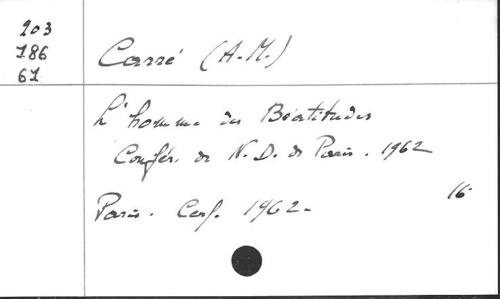 203
786
61
Carré (A.-M.)
L'homme des Béatitudes
Confér. de N. D. de Paris. 1962
Paris. Cerf. 1962-
16